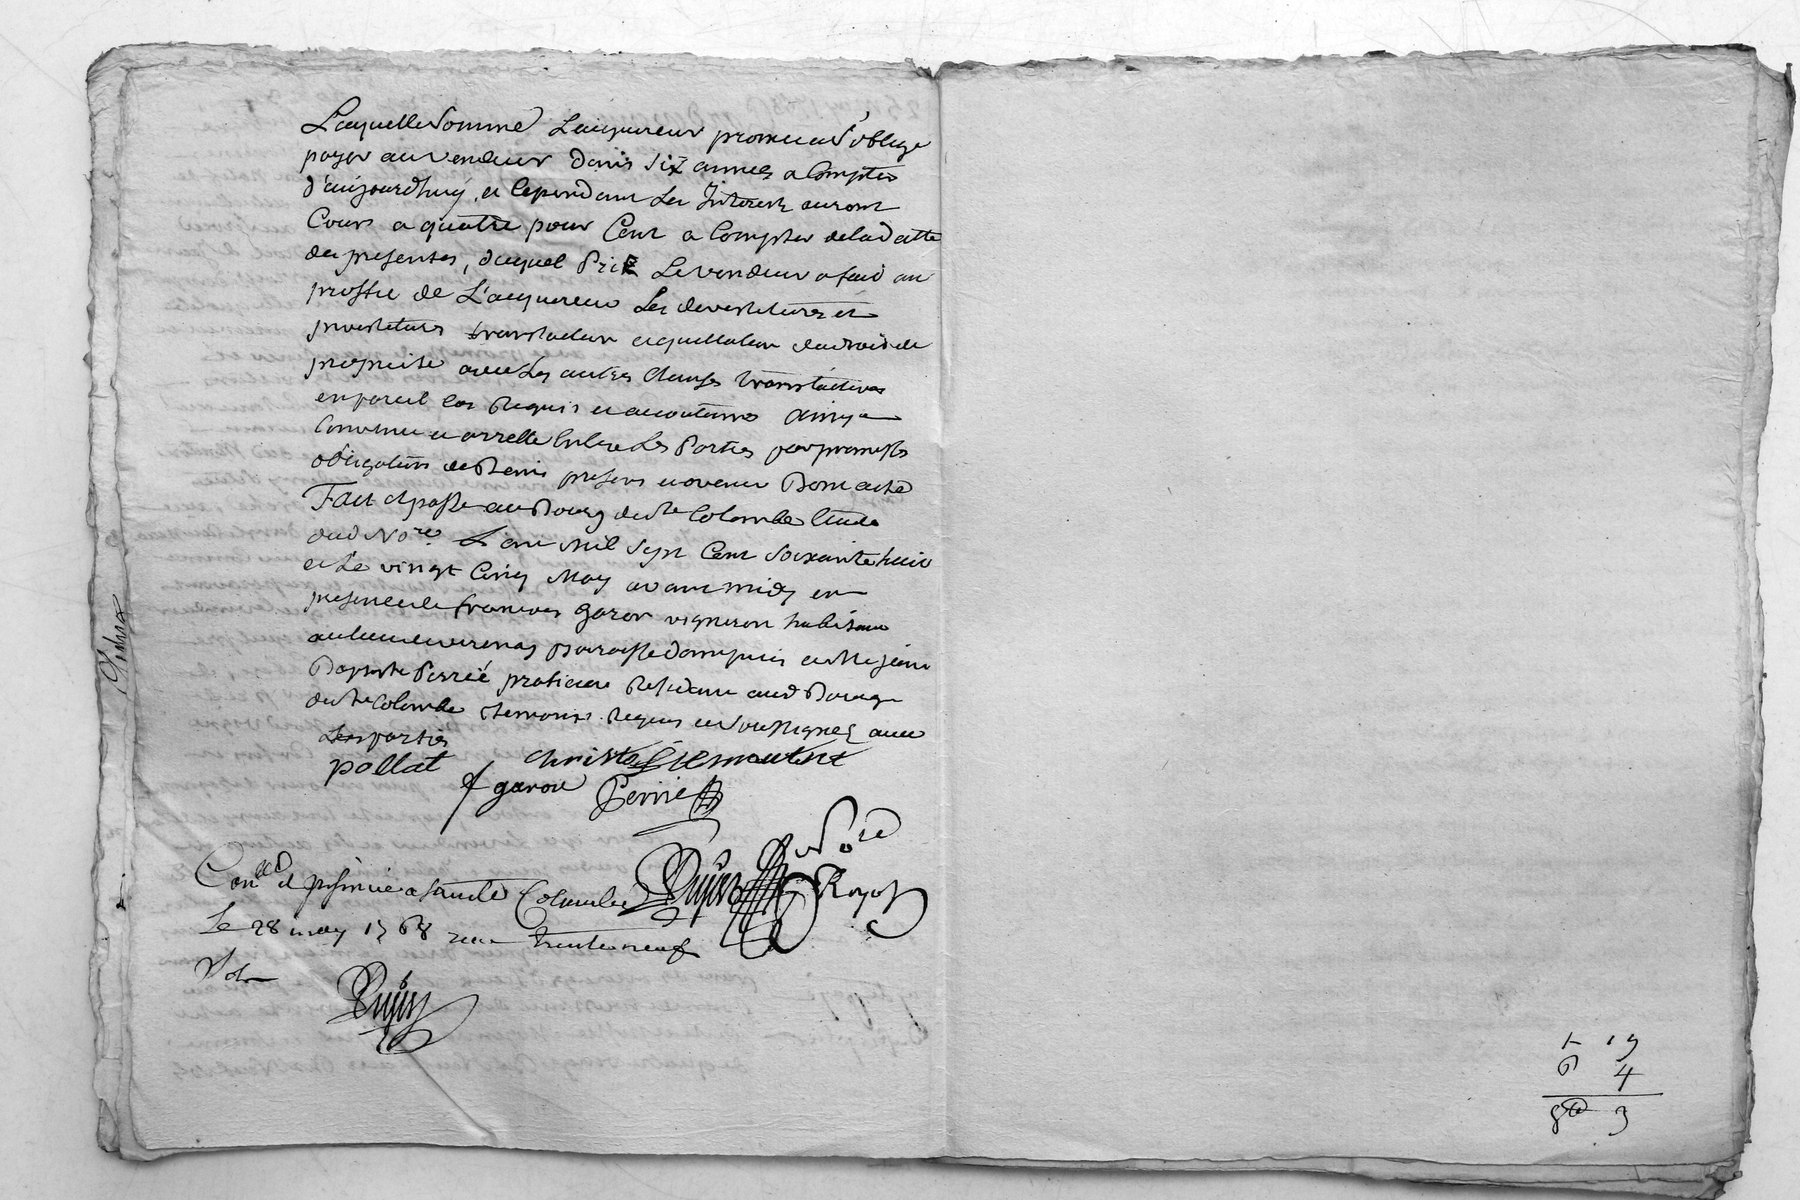 Laquelle Somme Lacquereur promet et S'oblige
payer au vendeur dans six années a Compter
d'aujourdhuy, et Cependant Les Interests auront
Cours a quatre pour Cent a Compter de la datte
des presentes, duquel Prix Le vendeur a fait au
proffit de L'acquereur Les devestitures et
investitures translation du droit de
proprieté avec Les autres Clauses translatives
en pareil Cas Requis et accoutumés Ainsy
Convenu et arretté Entre Les Parties par promesses
obligations de Biens presens et avenir Dont acte
Fait et passé au Bourg de Ste Colombe Etude
dud Nore L'an Mil Sept Cent Soixante huit
et Le vingt Cinq May avant midy en
presence de francois garon vigneron habitant
au lieu de verenay paroisse d'ampuis et Me jean
Baptiste Perrié praticien Residant aud Bourg
de Ste Colombe temoins Requis et Soussignez avec
Les parties
pallat Christo Clemoutent
f garon Perrié
Nore
Conllé et a Sainte Colombe Dujas Royal
Le 28 may 1768 trente neuf
Sols
Dujas
1 19
6 4
8 3